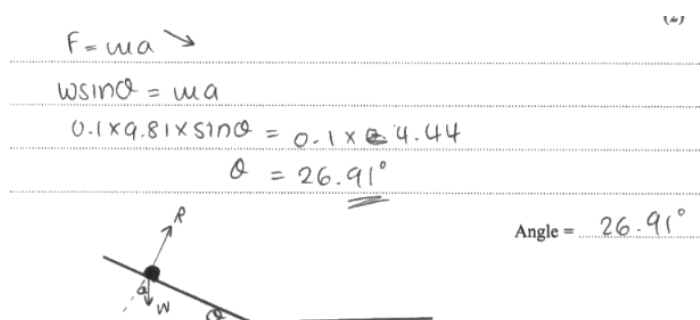 (2)
F = ma ↘
Wsinθ = ma
0.1×9.81×sinθ = 0.1× 4.44
θ = 26.91°
R
Angle = 26.91°
θ
W
θ